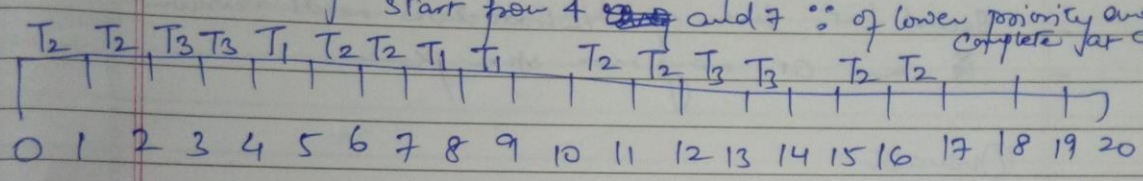 start from 4 and 7 ∵ of lower priority
complete far
T2 T2 T3 T3 T1 T2 T2 T1 T1 T2 T2 T3 T3 T2 T2
0 1 2 3 4 5 6 7 8 9 10 11 12 13 14 15 16 17 18 19 20